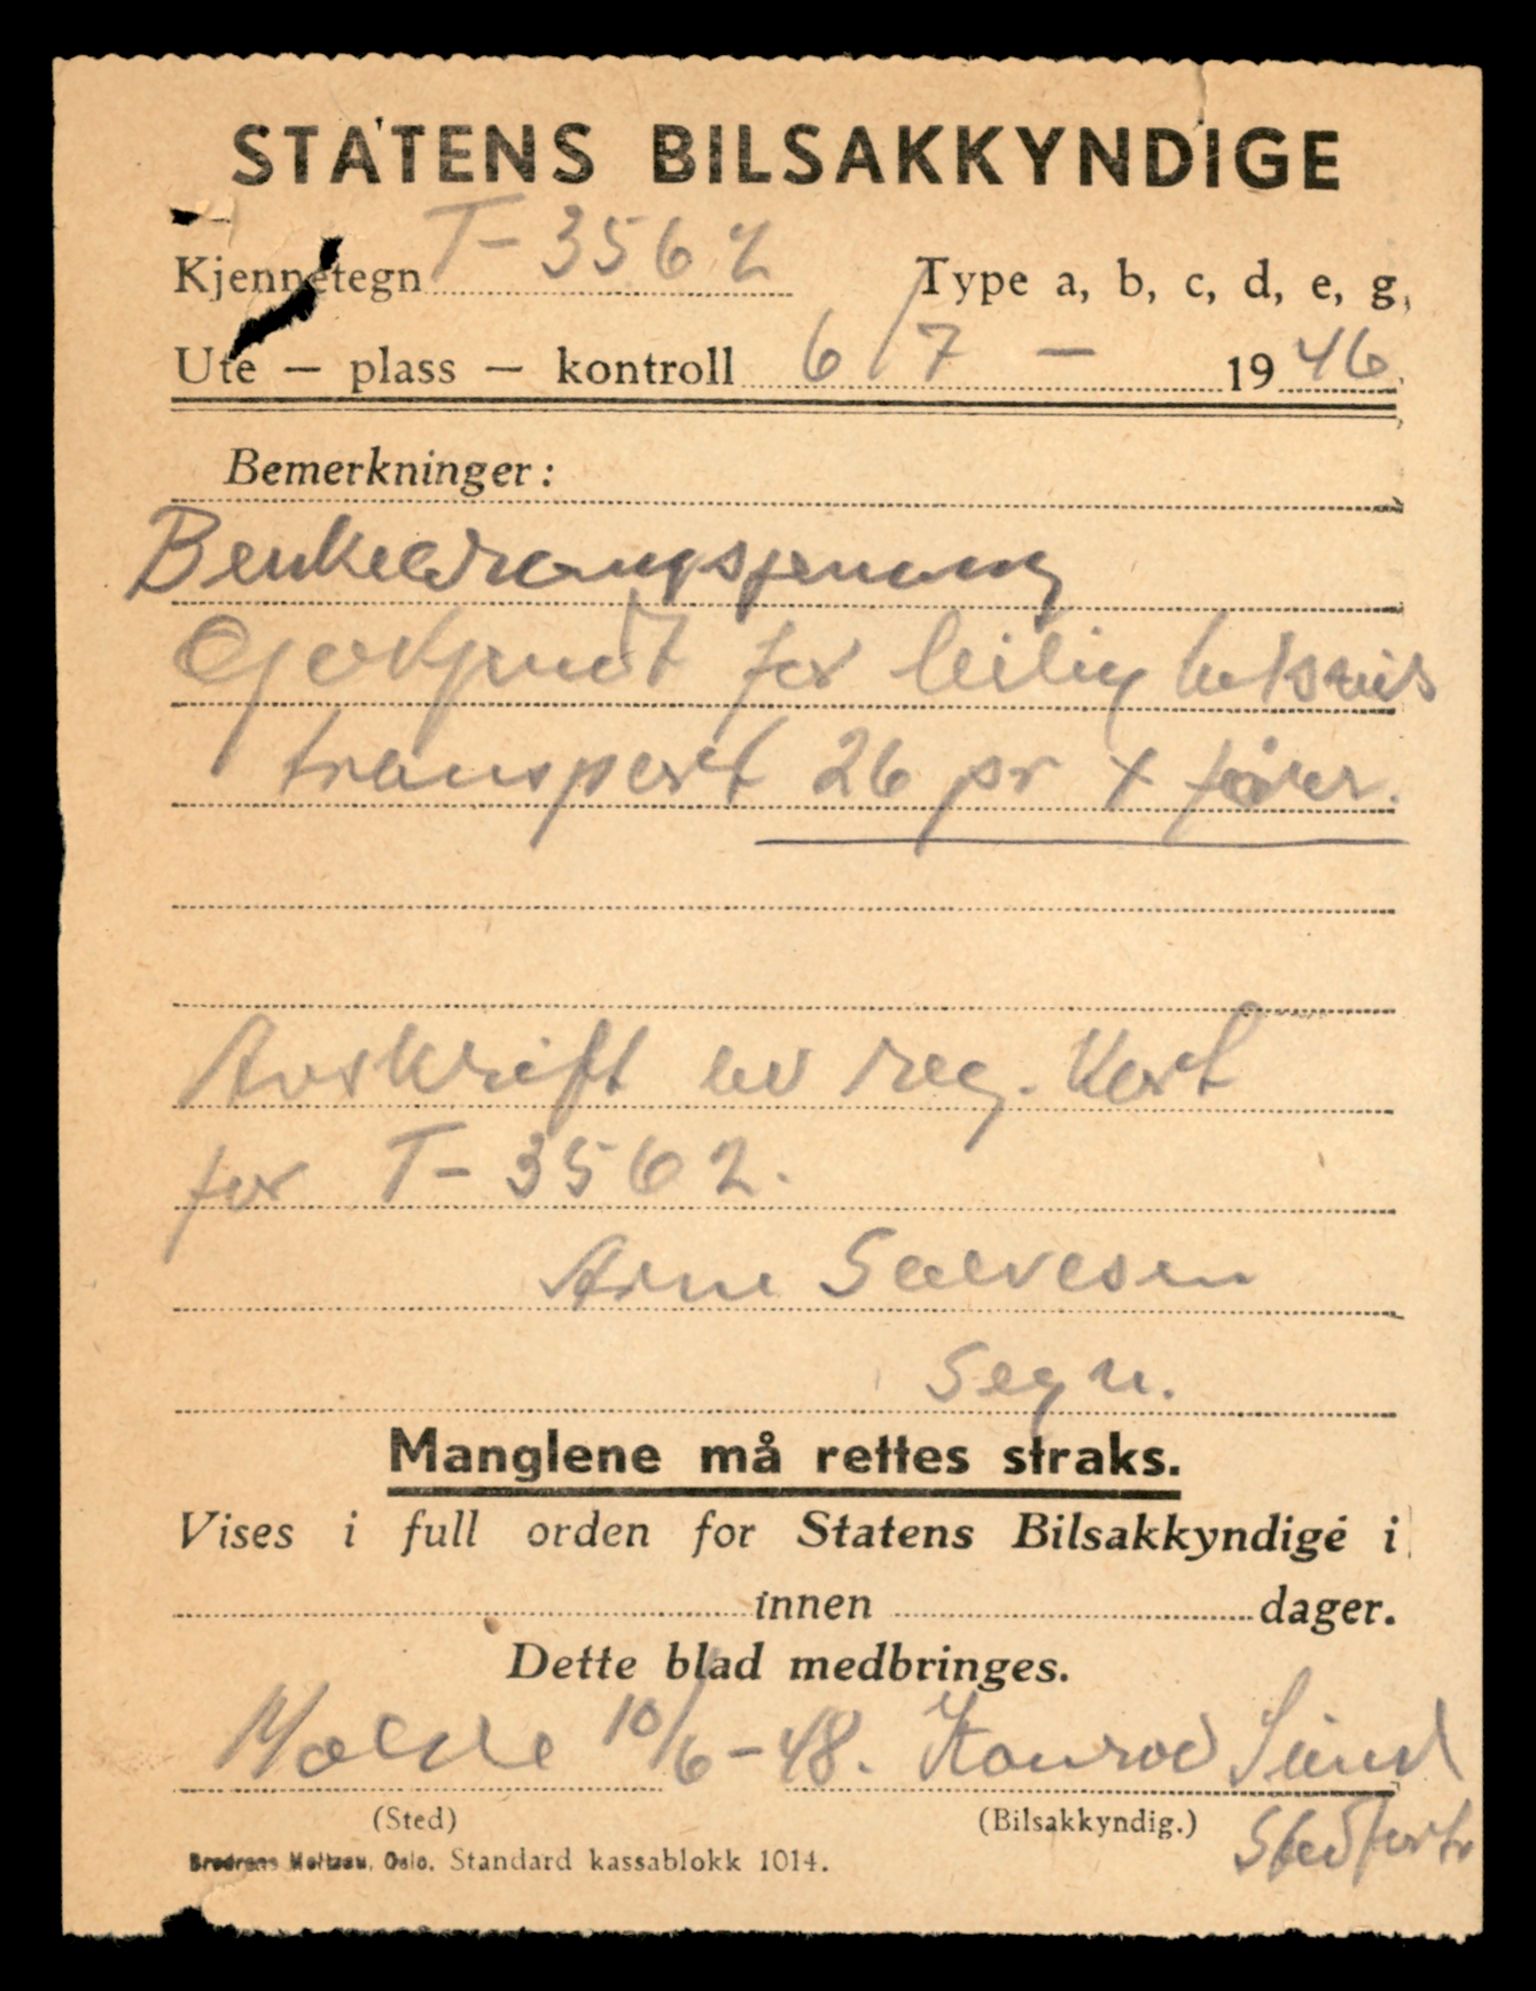 STATENS BILSAKKYNDIGE
Kjennetegn T-3562 Type a, b, c, d, e, g,
Ute — plass — kontroll 6/7 — 1946.
Bemerkninger:
Godkjendt for leilighetsvis
transport 26 pr + fører.
Avskrift av reg. kort
for T-3562.
Arne Salvesen
Sogn.
Manglene må rettes straks.
Vises i full orden for Statens Bilsakkyndige i
innen dager.
Dette blad medbringes.
Molde 10/6-48. Konrad Sund
(Sted) (Bilsakkyndig.) Stedfortr
Brødrene Moltzau, Oslo. Standard kassablokk 1014.